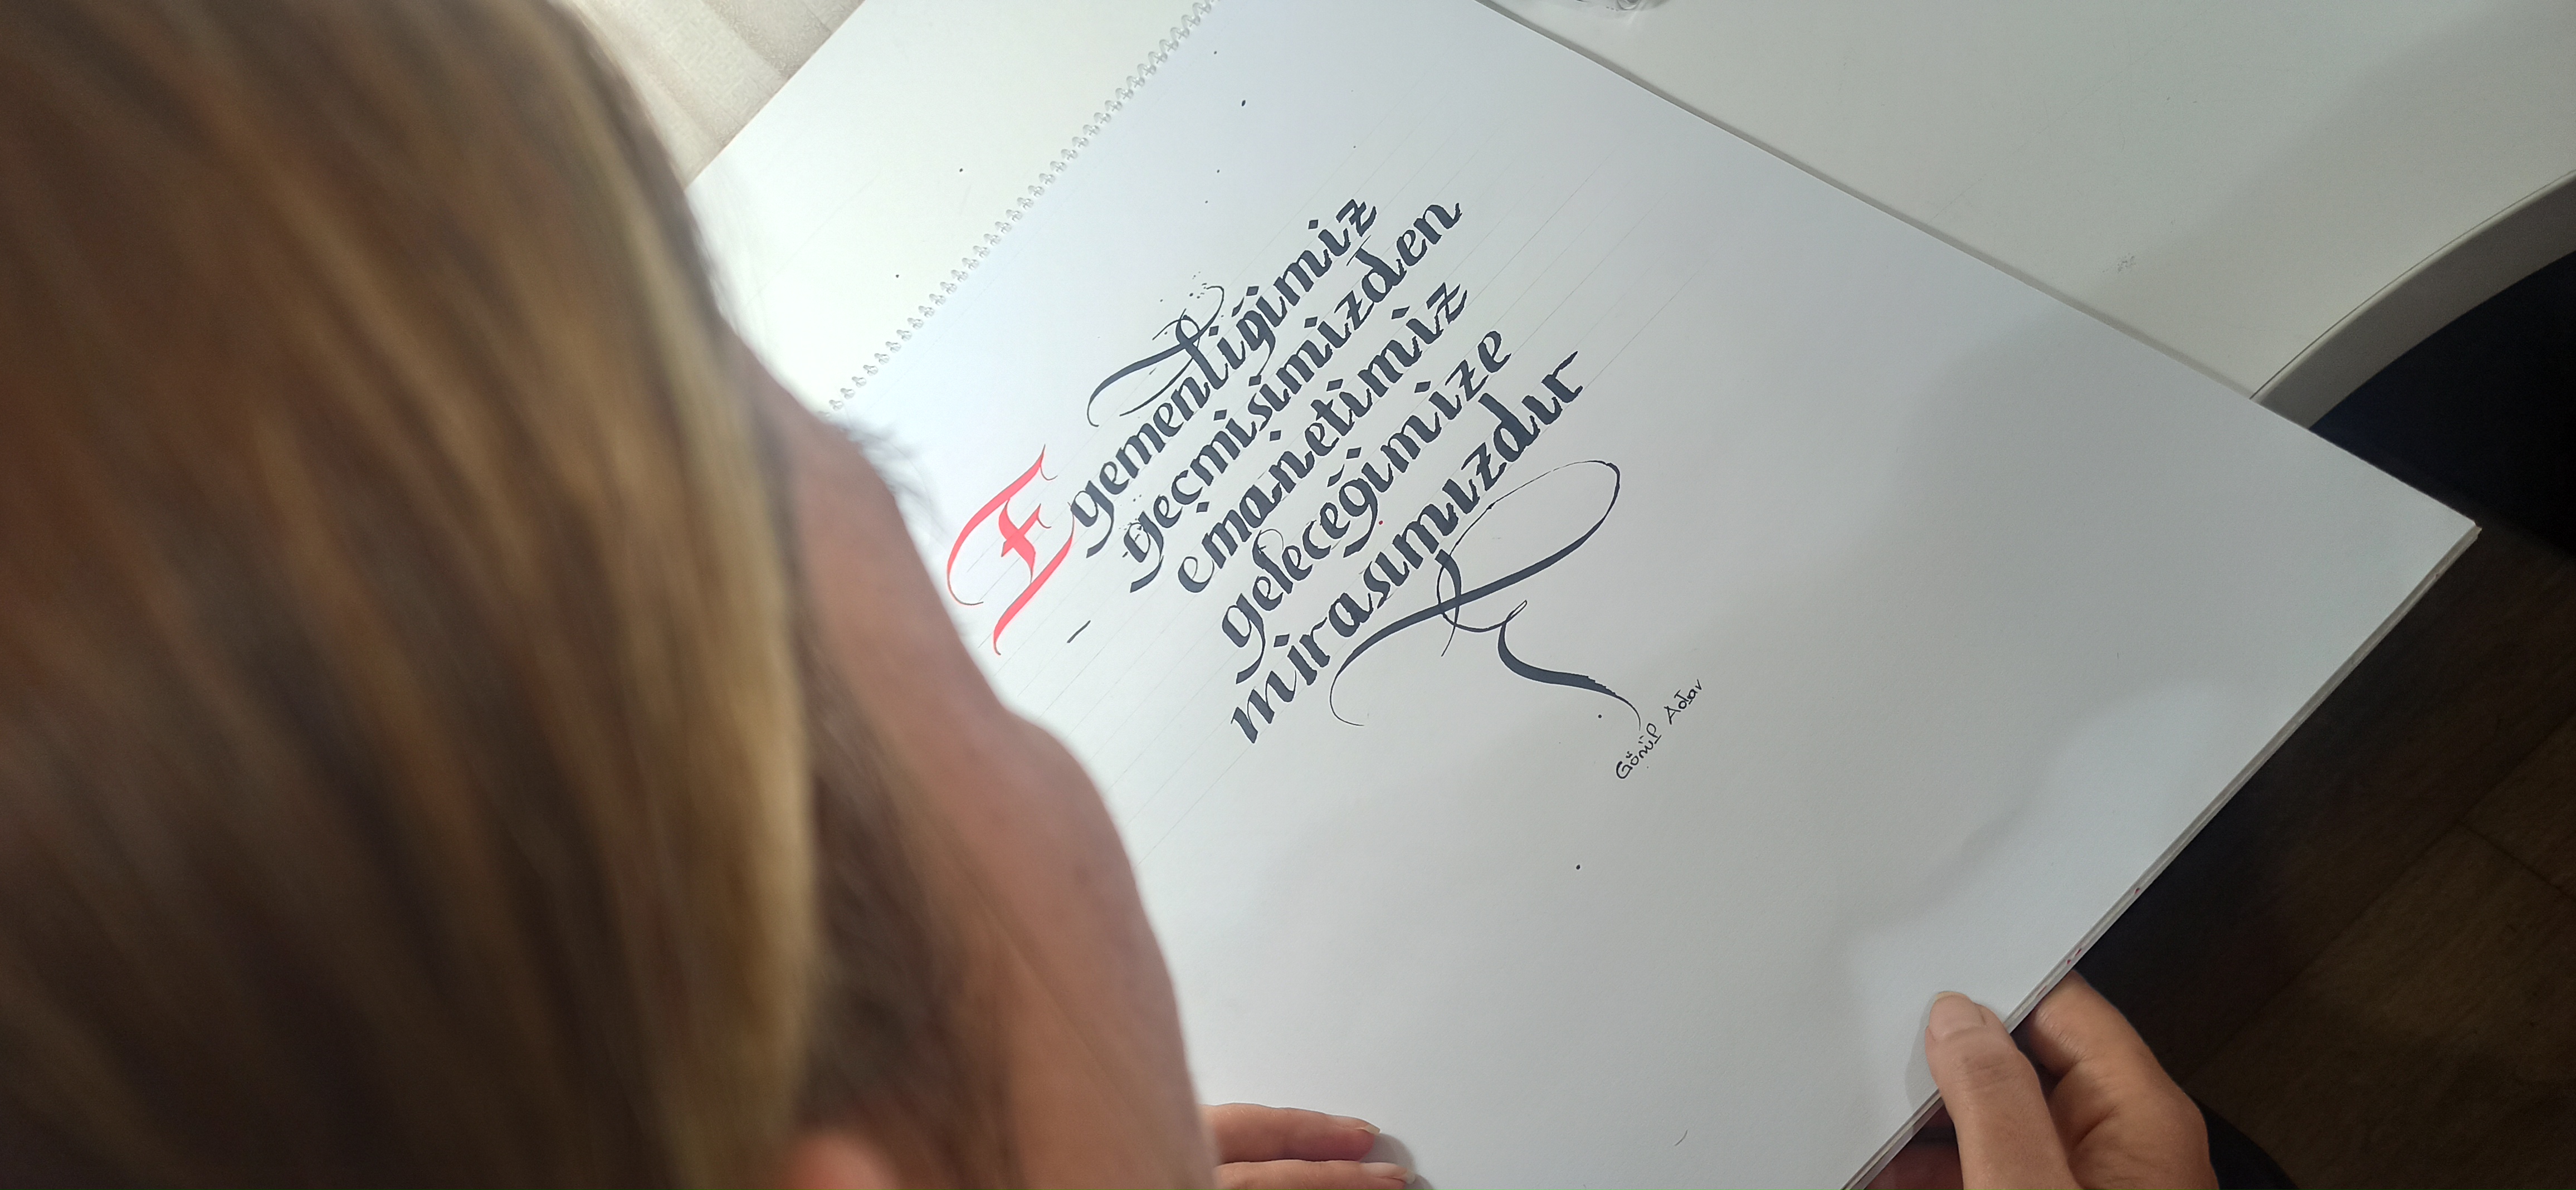 Egemenliğimiz
geçmisimizden
emanetimiz
geleceğimize
mirasımızdır
Gönül